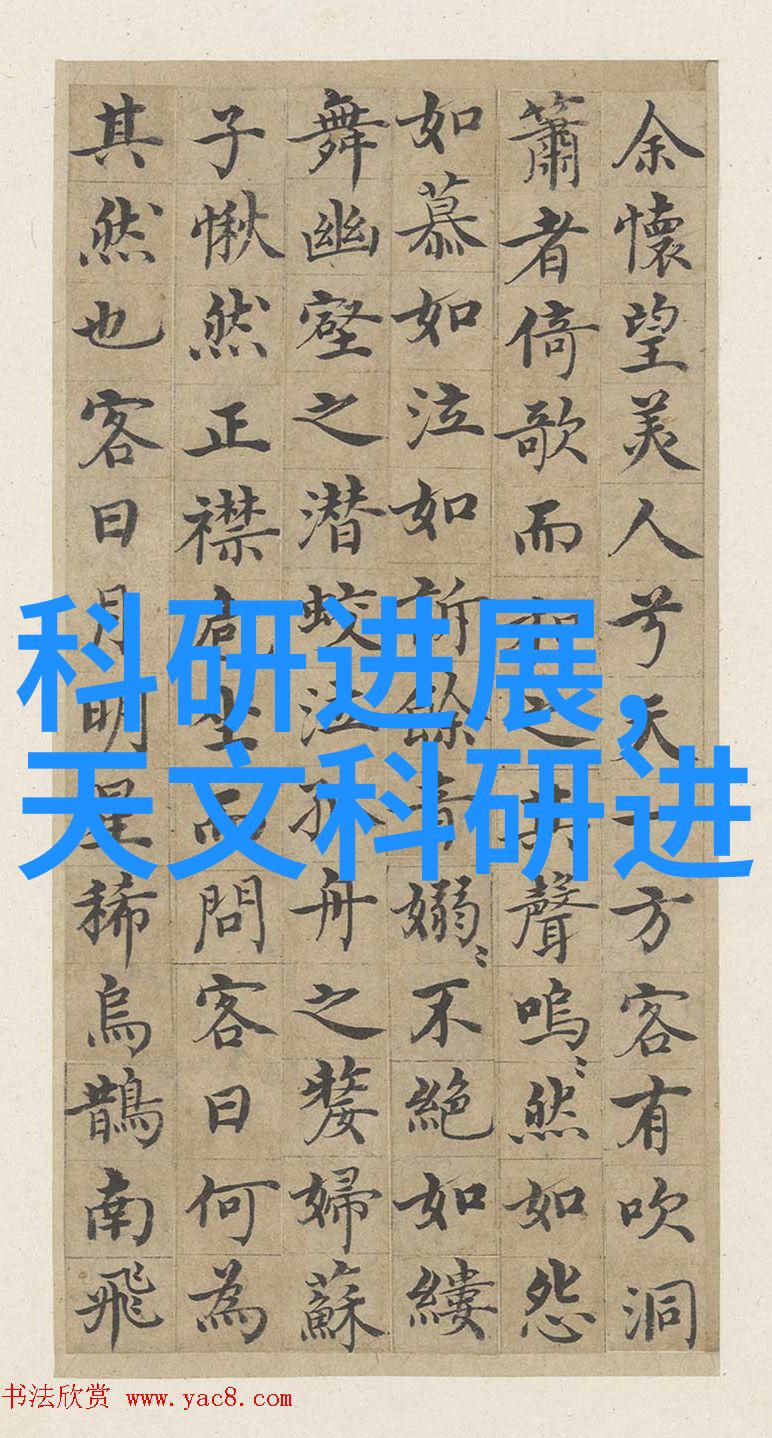 余懷望美人兮天一方客有吹洞
簫者倚歌而和之其聲嗚〻然如怨
如慕如泣如訴餘音嫋〻不絶如縷
舞幽壑之潜蛟泣孤舟之嫠婦蘇
子愀然正襟危坐而問客曰何為
其然也客曰月明星稀烏鵲南飛
科研进展,
天文科研进
书法欣赏 www.yac8.com